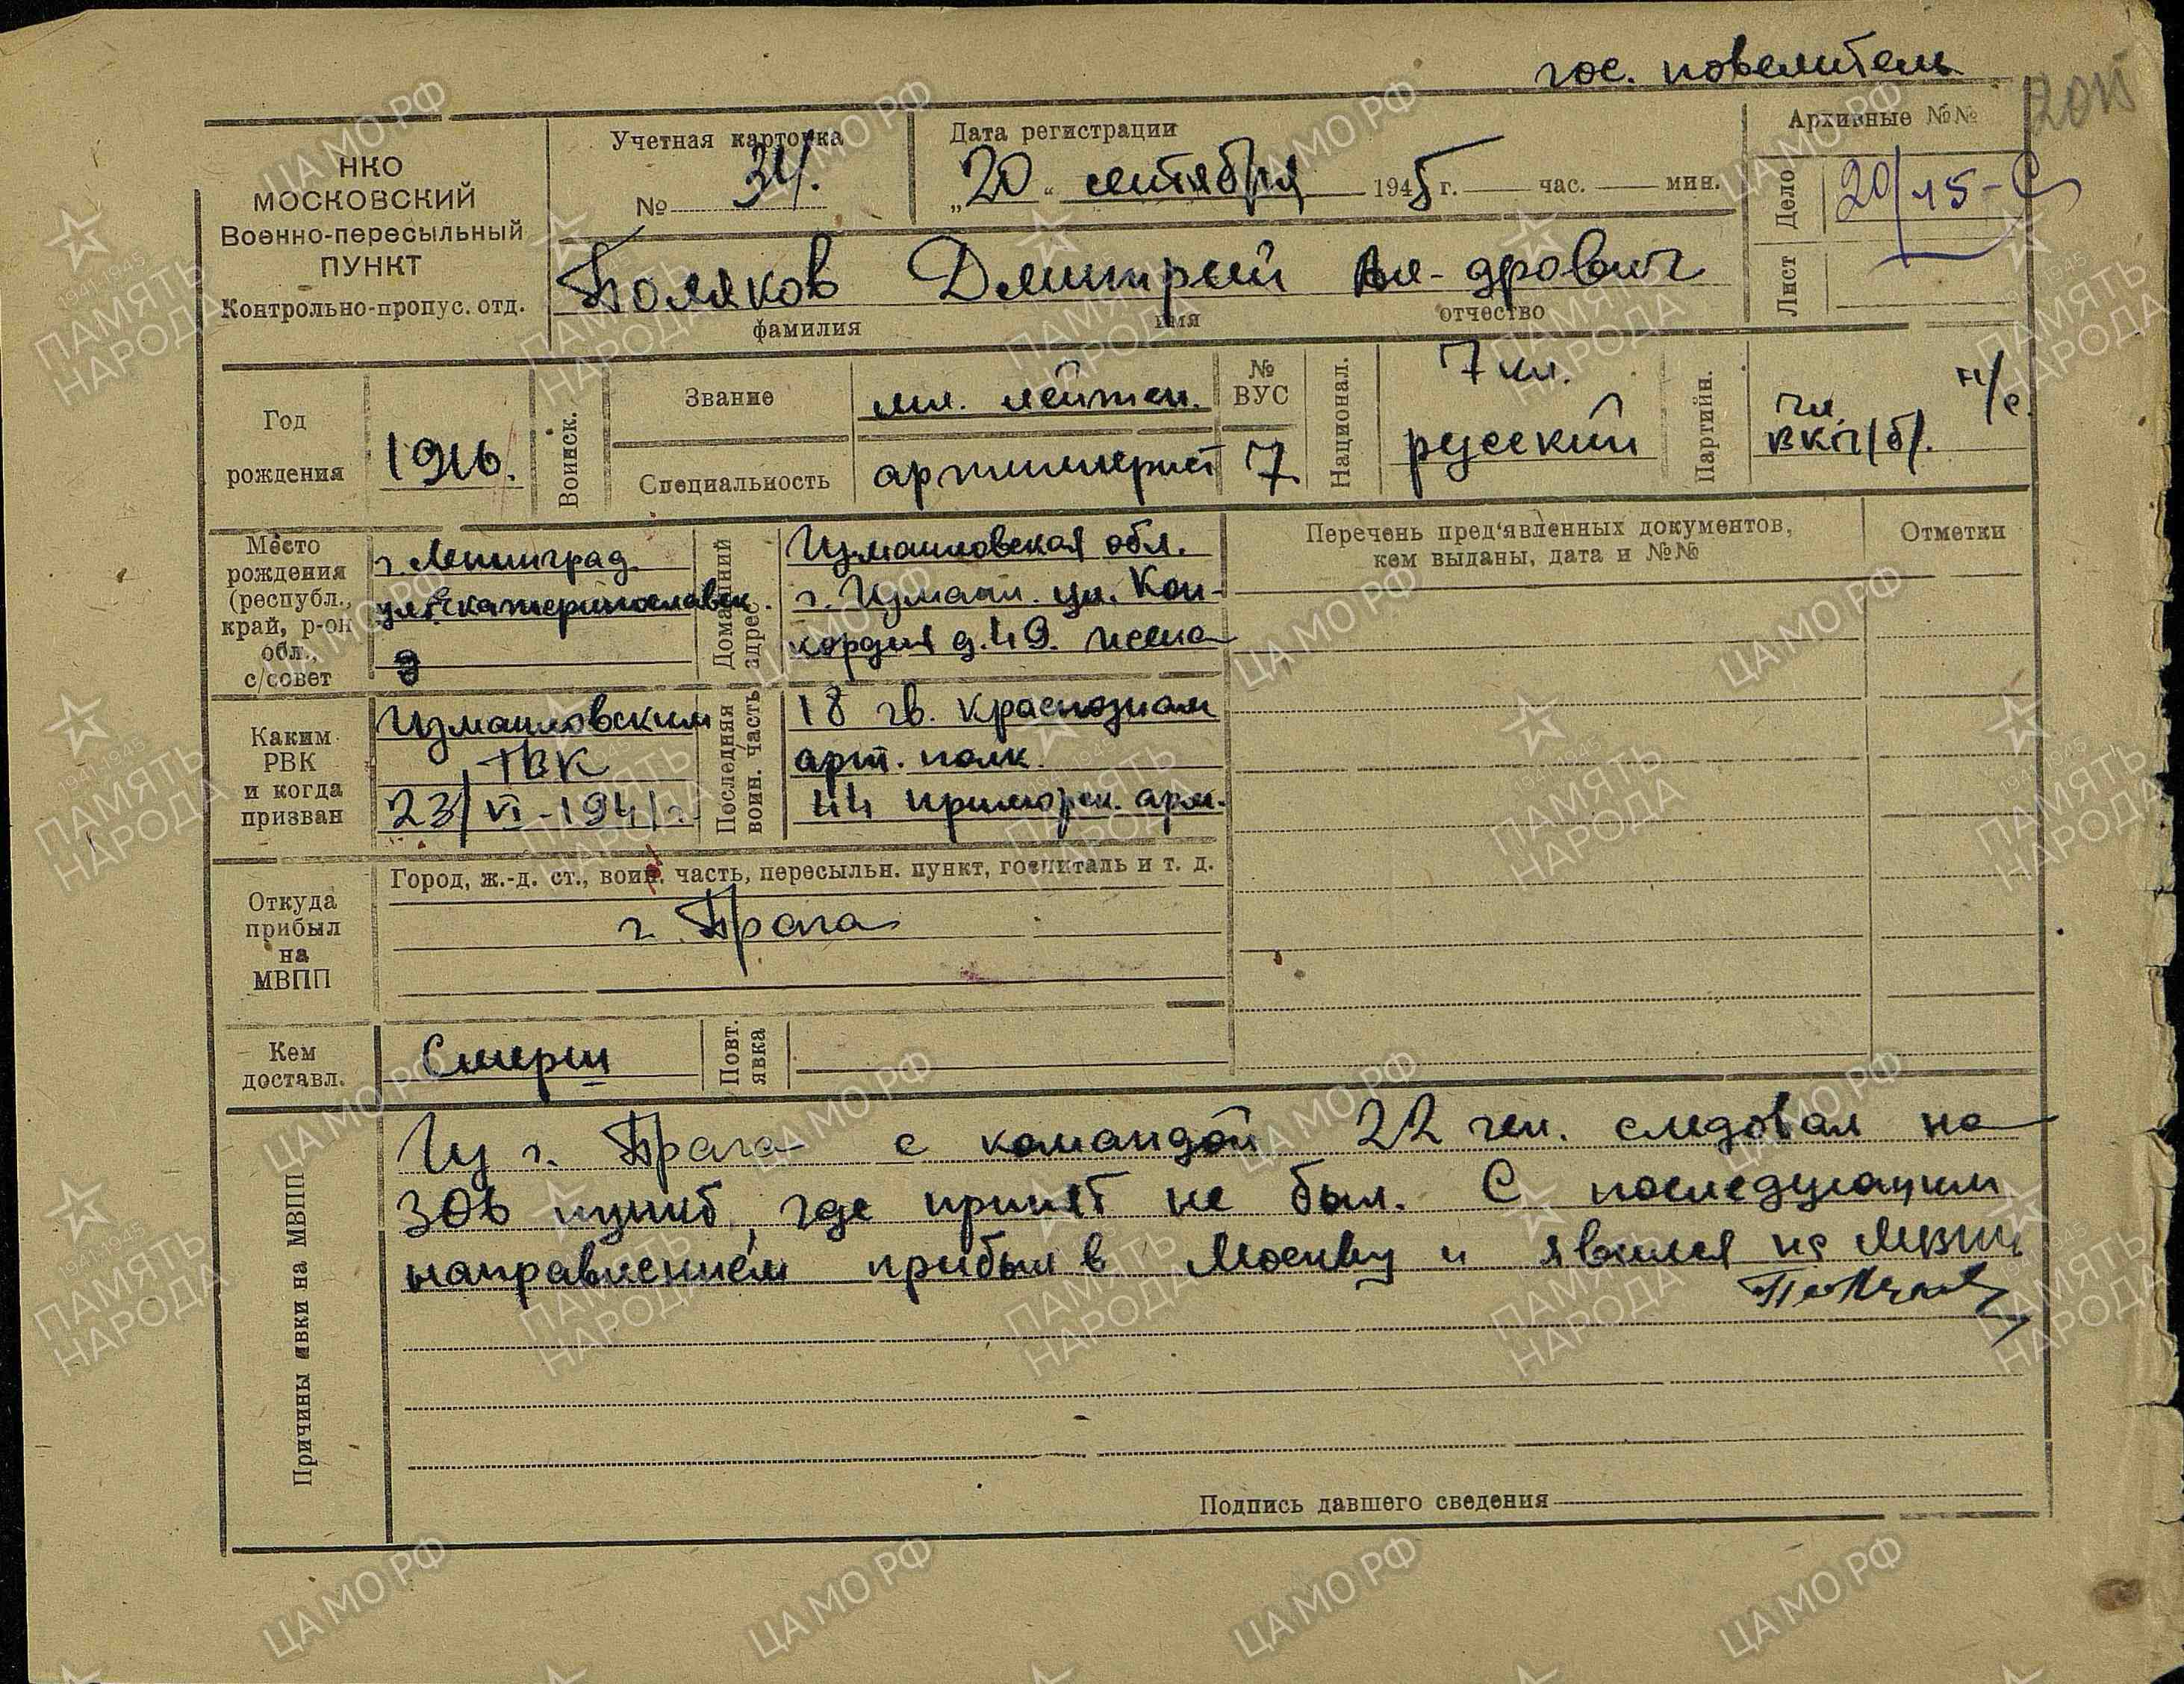 гос. повелитель
НКО
МОСКОВСКИЙ
Военно-пересыльный
ПУНКТ
Контрольно-пропус. отд.
Учетная карточка
№ 34.
Дата регистрации
„20“ сентября 1945 г. час. мин.
Архивные №№
Дело 20/15-С
Лист
Поляков Дмитрий Ал-дрович
фамилия имя отчество
Год
рождения
1916.
Воинск.
Звание
мл. лейтен.
Специальность
артиллерист
№
ВУС
7
Национал.
7 кл.
русский
Партийн.
чл.
ВКП/б/.
Место
рождения
(республ.,
край, р-он
обл.,
с/совет
г. Ленинград
ул. Екатеринославск.
9
Домашний
адрес
Измаиловская обл.
г. Измаил. ул. Кон-
кордия д. 49. жена
Каким
РВК
и когда
призван
Измаиловским
ГВК
23/VI-1941 г.
Последняя
воин. часть
18 гв. краснознам
арт. полк.
44 приморск. арм.
Перечень пред'явленных документов,
кем выданы, дата и №№
Отметки
Откуда
прибыл
на
МВПП
Город, ж.-д. ст., воин. часть, пересыльн. пункт, госпиталь и т. д.
г. Прага
Кем
доставл.
Смерш
Повт.
явка
Причины явки на МВПП
Из г. Прага с командой 22 чел. следовал на
306 пункт, где принят не был. С последующим
направлением прибыл в Москву и явился на МВПП
Подпись давшего сведения
ЦАМО РФ
1941-1945
ПАМЯТЬ
НАРОДА